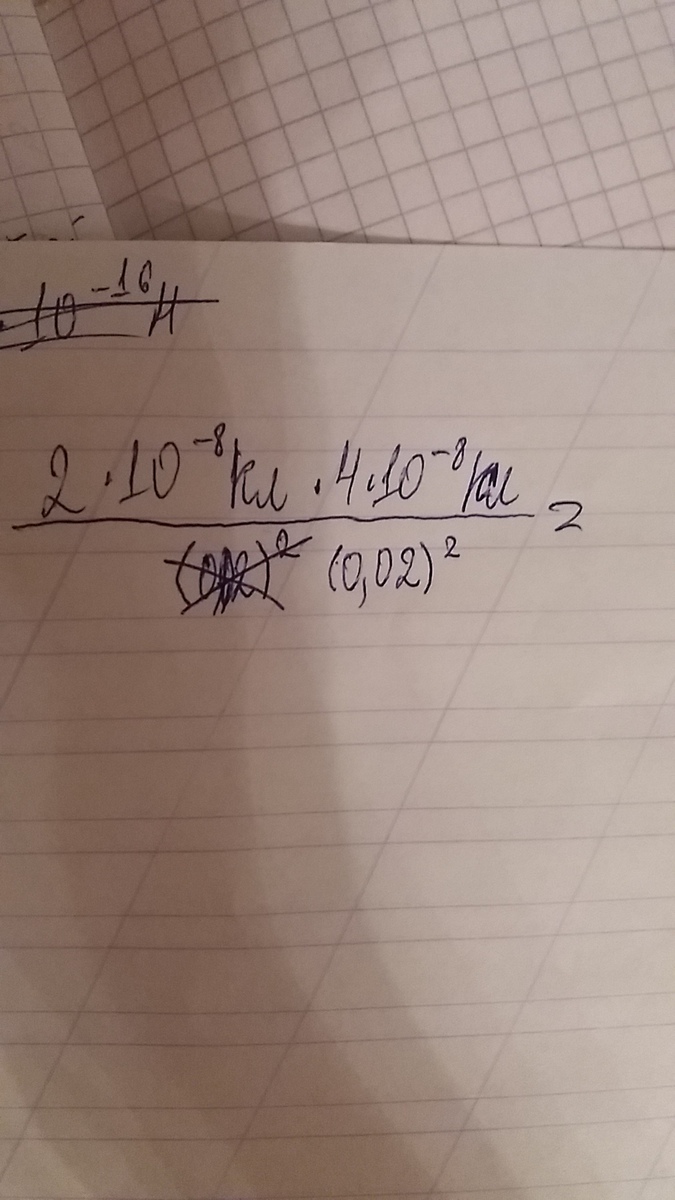 · 10⁻¹⁶ Н
2 · 10⁻⁸ кл · 4 · 10⁻⁸ кл =
(0,02)² (0,02)²